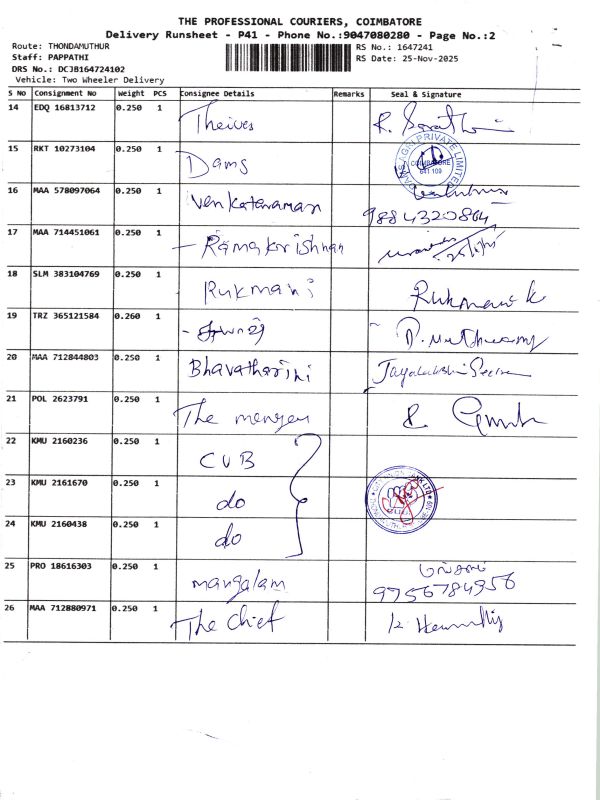 THE PROFESSIONAL COURIERS, COIMBATORE
Delivery Runsheet - P41 - Phone No.:9047080280 - Page No.:2
Route: THONDAMUTHUR
RS No.: 1647241
Staff: PAPPATHI
RS Date: 25-Nov-2025
DRS No.: DCJB164724102
Vehicle: Two Wheeler Delivery
S No Consignment No Weight PCS Consignee Details Remarks Seal & Signature
14 EDQ 16813712 0.250 1 Theives
15 RKT 10273104 0.250 1 Dams
DAMS AGRI PRIVATE LIMITED
COIMBATORE
641 109
16 MAA 578097064 0.250 1 Venkataraman
9884320864
17 MAA 714451061 0.250 1 - Ramakrishnan
18 SLM 383104769 0.250 1 Rukmani
19 TRZ 365121584 0.260 1
20 MAA 712844803 0.250 1 Bhavatharini
21 POL 2623791 0.250 1 The
22 KMU 2160236 0.250 1 CUB
23 KMU 2161670 0.250 1 do
24 KMU 2160438 0.250 1 do
25 PRO 18616303 0.250 1 mangalam
9956784956
26 MAA 712880971 0.250 1 The Chief